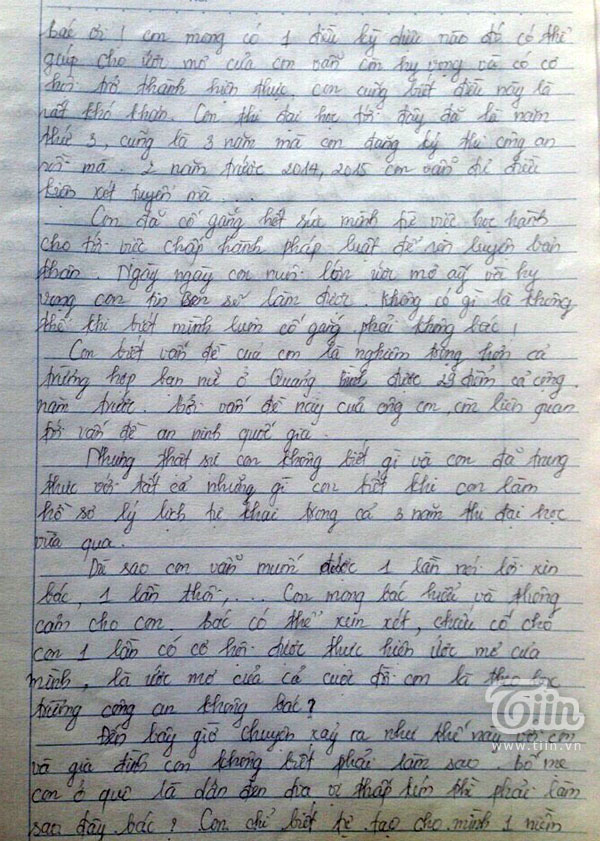 bác ơi ! con mong có 1 điều kỳ diệu nào đó có thể
giúp cho ước mơ của con vẫn còn hy vọng và có cơ
hội trở thành hiện thực con cũng biết điều này là
rất khó khăn. Con thi đại học tới đây đã là năm
thứ 3, cũng là 3 năm mà con đăng ký thi công an
rồi mà. 2 năm trước 2014, 2015 con vẫn đủ điều
kiện xét tuyển mà ....
Con đã cố gắng hết sức mình từ việc học hành
cho tới việc chấp hành pháp luật để rèn luyện bản
thân. Ngày ngày con nuôi lớn ước mơ ấy và hy
vọng con tin con sẽ làm được. Không có gì là không
thể khi biết mình luôn cố gắng phải không bác !
Con biết vấn đề của con là nghiêm trọng hơn cả
trường hợp bạn nữ ở Quảng Bình được 29 điểm cả cộng
năm trước. Bởi vấn đề này của ông con, còn liên quan
tới vấn đề an ninh quốc gia.
Nhưng thật sự con không biết gì và con đã trung
thực với tất cả những gì con biết khi con làm
hồ sơ lý lịch tự khai trong cả 3 năm thi đại học
vừa qua.
Dù sao con vẫn muốn được 1 lần nói lời xin
bác, 1 lần thôi,.... Con mong bác hiểu và thông
cảm cho con. Bác có thể xem xét, chiếu cố cho
con 1 lần có cơ hội được thực hiện ước mơ của
mình, là ước mơ của cả cuộc đời con là theo học
trường công an không bác ?
Đến bây giờ chuyện xảy ra như thế này với con
và gia đình con không biết phải làm sao. bố mẹ
con ở quê là dân đen địa vị thấp kém thì phải làm
sao đây bác ? Con chỉ biết tự tạo cho mình 1 niềm
Tiin
www.tiin.vn